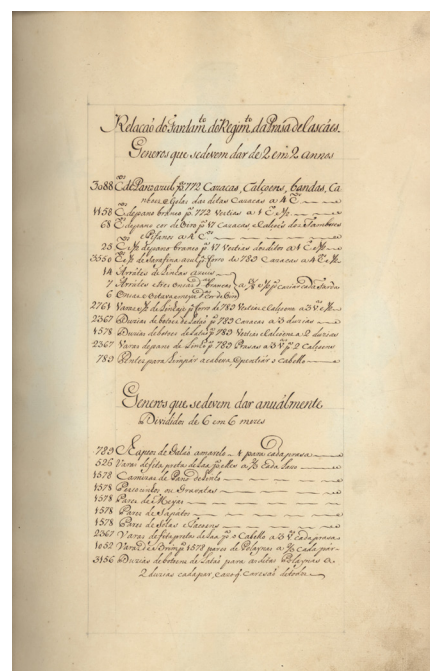 Relacaõ do Fardam.to do Regim.to da Prasa de Cascáes.
Generos que se devem dar de 2 em 2 annos
3088 C.os de Pano azul p.a 772 Cazacas, Calçoens, bandas, Ca
nhoes, e Golas das ditas Cazacas a 4 C.os
1158 C. de pano branco p.a 772 Vestias a 1 C.o e ½
68 C. de pano cor de p.a 17 Cazacas, e Calcois dos Tambores
e Pifano a 4 C.os
25 C. e ½ de pano branco p.a 17 Vestias dos ditos a 1 C. e ½
3550 C. e ½ de Sarafina azul p.a forro de 789 Cazacas a 4 C. e ½
14 Arrates de Linhas azuis
7 Arrates e tres Onças d.as brancas
6 Onças e Oitava e meya d.as cor de
2761 Varas e ½ de Linhaje p.a forro de 789 Vestias e Calçoens a 3 V. e ½
2367 Duzias de botoes de Lataõ p.a 789 Cazacas a 3 duzias
1578 Duzias de botoes de Lataõ p.a 789 Vestias e Calçoens a 2 duzias
2367 Varas de pano de Linho p.a 789 Prasas a 3 V. p.a 2 Calçoens
789 Pentes para limpar a cabeça, e pentiar o cabello
Generos que se devem dar anuálmente
Divididos de 6 em 6 mezes
789 Xapeos de Galaõ amarelo 1 para cada prasa
526 Varas de fita preta de Laa p.a elles a ⅔ cada Laso
1578 Camizas de Pano de Linho
1578 Pescosinhos ou Gravatas
1578 Pares de Meyas
1578 Pares de Sapatos
1578 Pares de Solas e Tacoens
2367 Varas de fita preta de Laa p.a o Cabello a 3 V. cada prasa
1052 Varas de Brim p.a 1578 pares de Polaynas a ⅔ cada par
3156 Duzias de botoens de Lataõ para as ditas Polaynas a
2 duzias cada par, cazo q.e caresaõ de todos